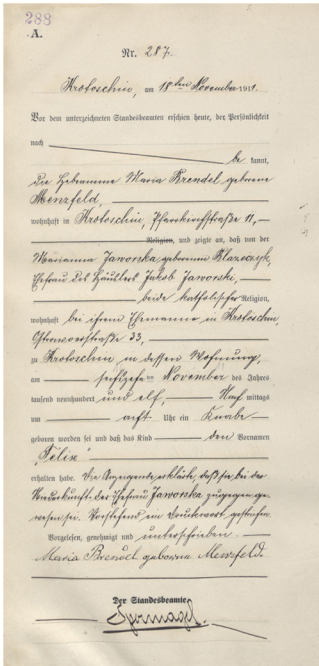 288
A.
Nr. 287.
Krotoschin, am 18ten November 1911.
Vor dem unterzeichneten Standesbeamten erschien heute, der Persönlichkeit
nach be kannt,
die Hebamme Maria Brendel geborene
Menzfeld,
wohnhaft in Krotoschin, Pfarrkirchstraße 11,
Religion, und zeigte an, daß von der
Marianna Jaworska geborenen
Ehefrau des Häuslers Jakob Jaworski,
beide katholischer Religion,
wohnhaft bei ihrem Ehemanne in Krotoschin,
Ostrowostraße 33,
zu Krotoschin, in dessen Wohnung,
am November des Jahres
tausend neunhundert und elf, Nach mittags
um acht Uhr ein Knabe
geboren worden sei und daß das Kind den Vornamen
"Felix"
erhalten habe. Die Anzeigende erklärte, daß sie bei der
Niederkunft der Ehefrau Jaworska zugegen ge-
wesen sei. Vorstehend ein Druckwort gestrichen.
Vorgelesen, genehmigt und unterschrieben.
Maria Brendel geborene Menzfeld.
Der Standesbeamte.